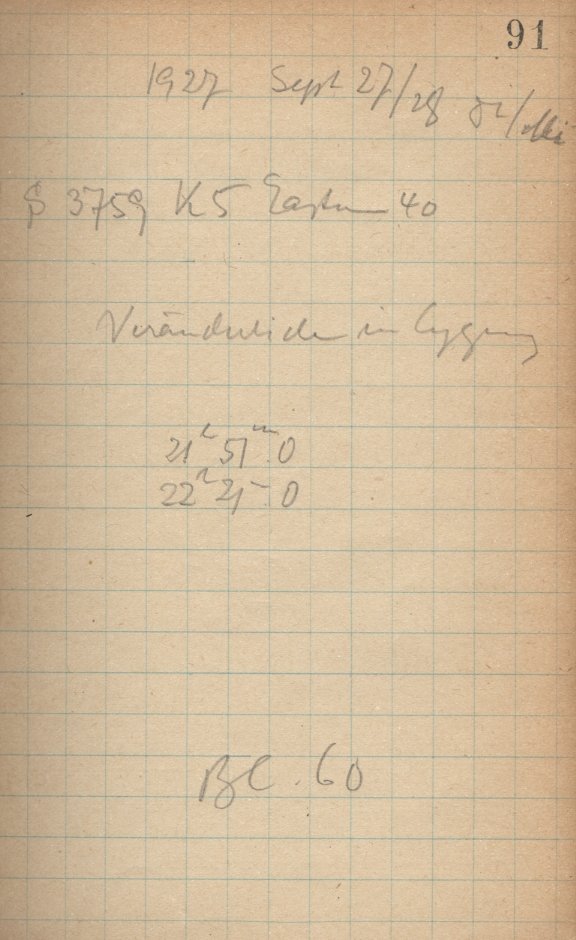 91
1927 Sept 27/28
3759 K5 Eastman 40
Veränderliche in Cygnus
21ʰ 51ᵐ.0
22ʰ 21ᵐ.0
Bl. 60